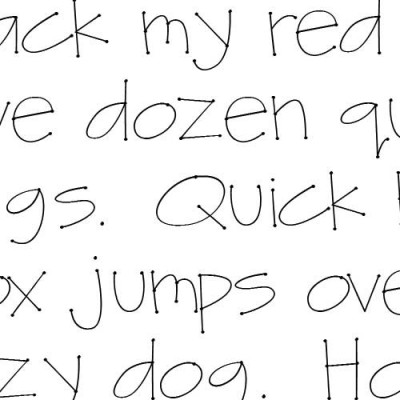 ack my red
ve dozen qu
gs. Quick
ox jumps ove
zy dog. Ho